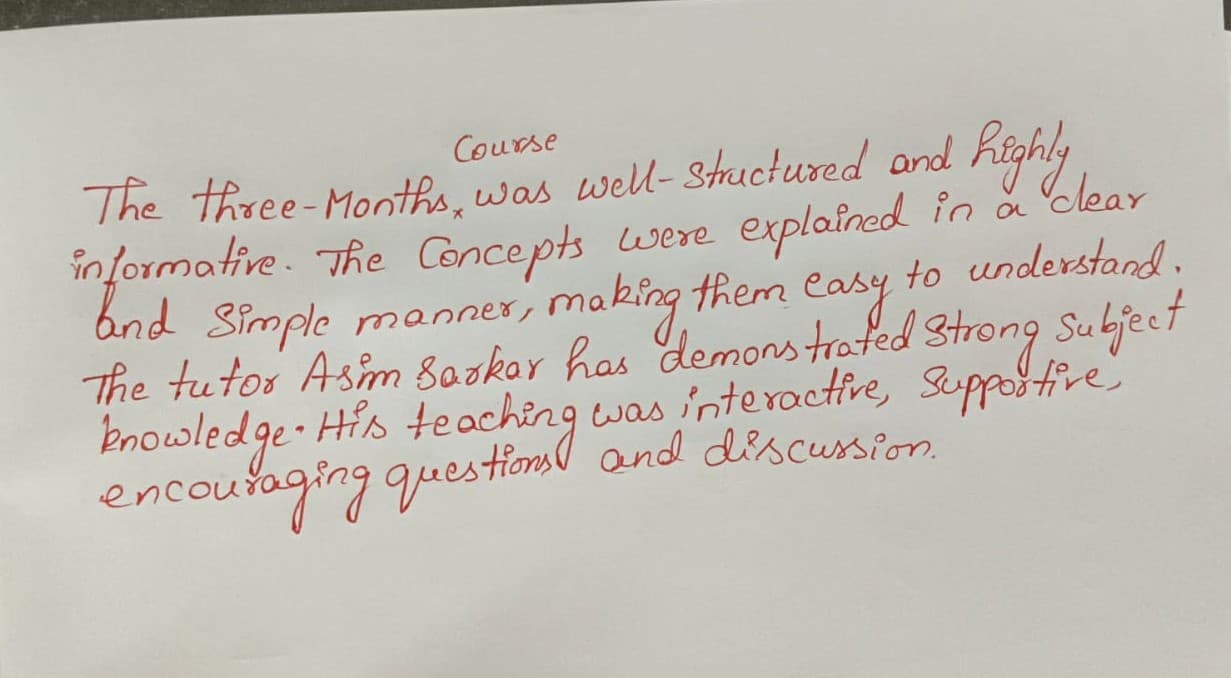 Course
The three-Months, was well-structured and highly
informative. The Concepts were explained in a clear
and simple manner, making them easy to understand.
The tutor Asim Sarkar has demonstrated strong subject
knowledge. His teaching was interactive, supportive,
encouraging questions and discussion.